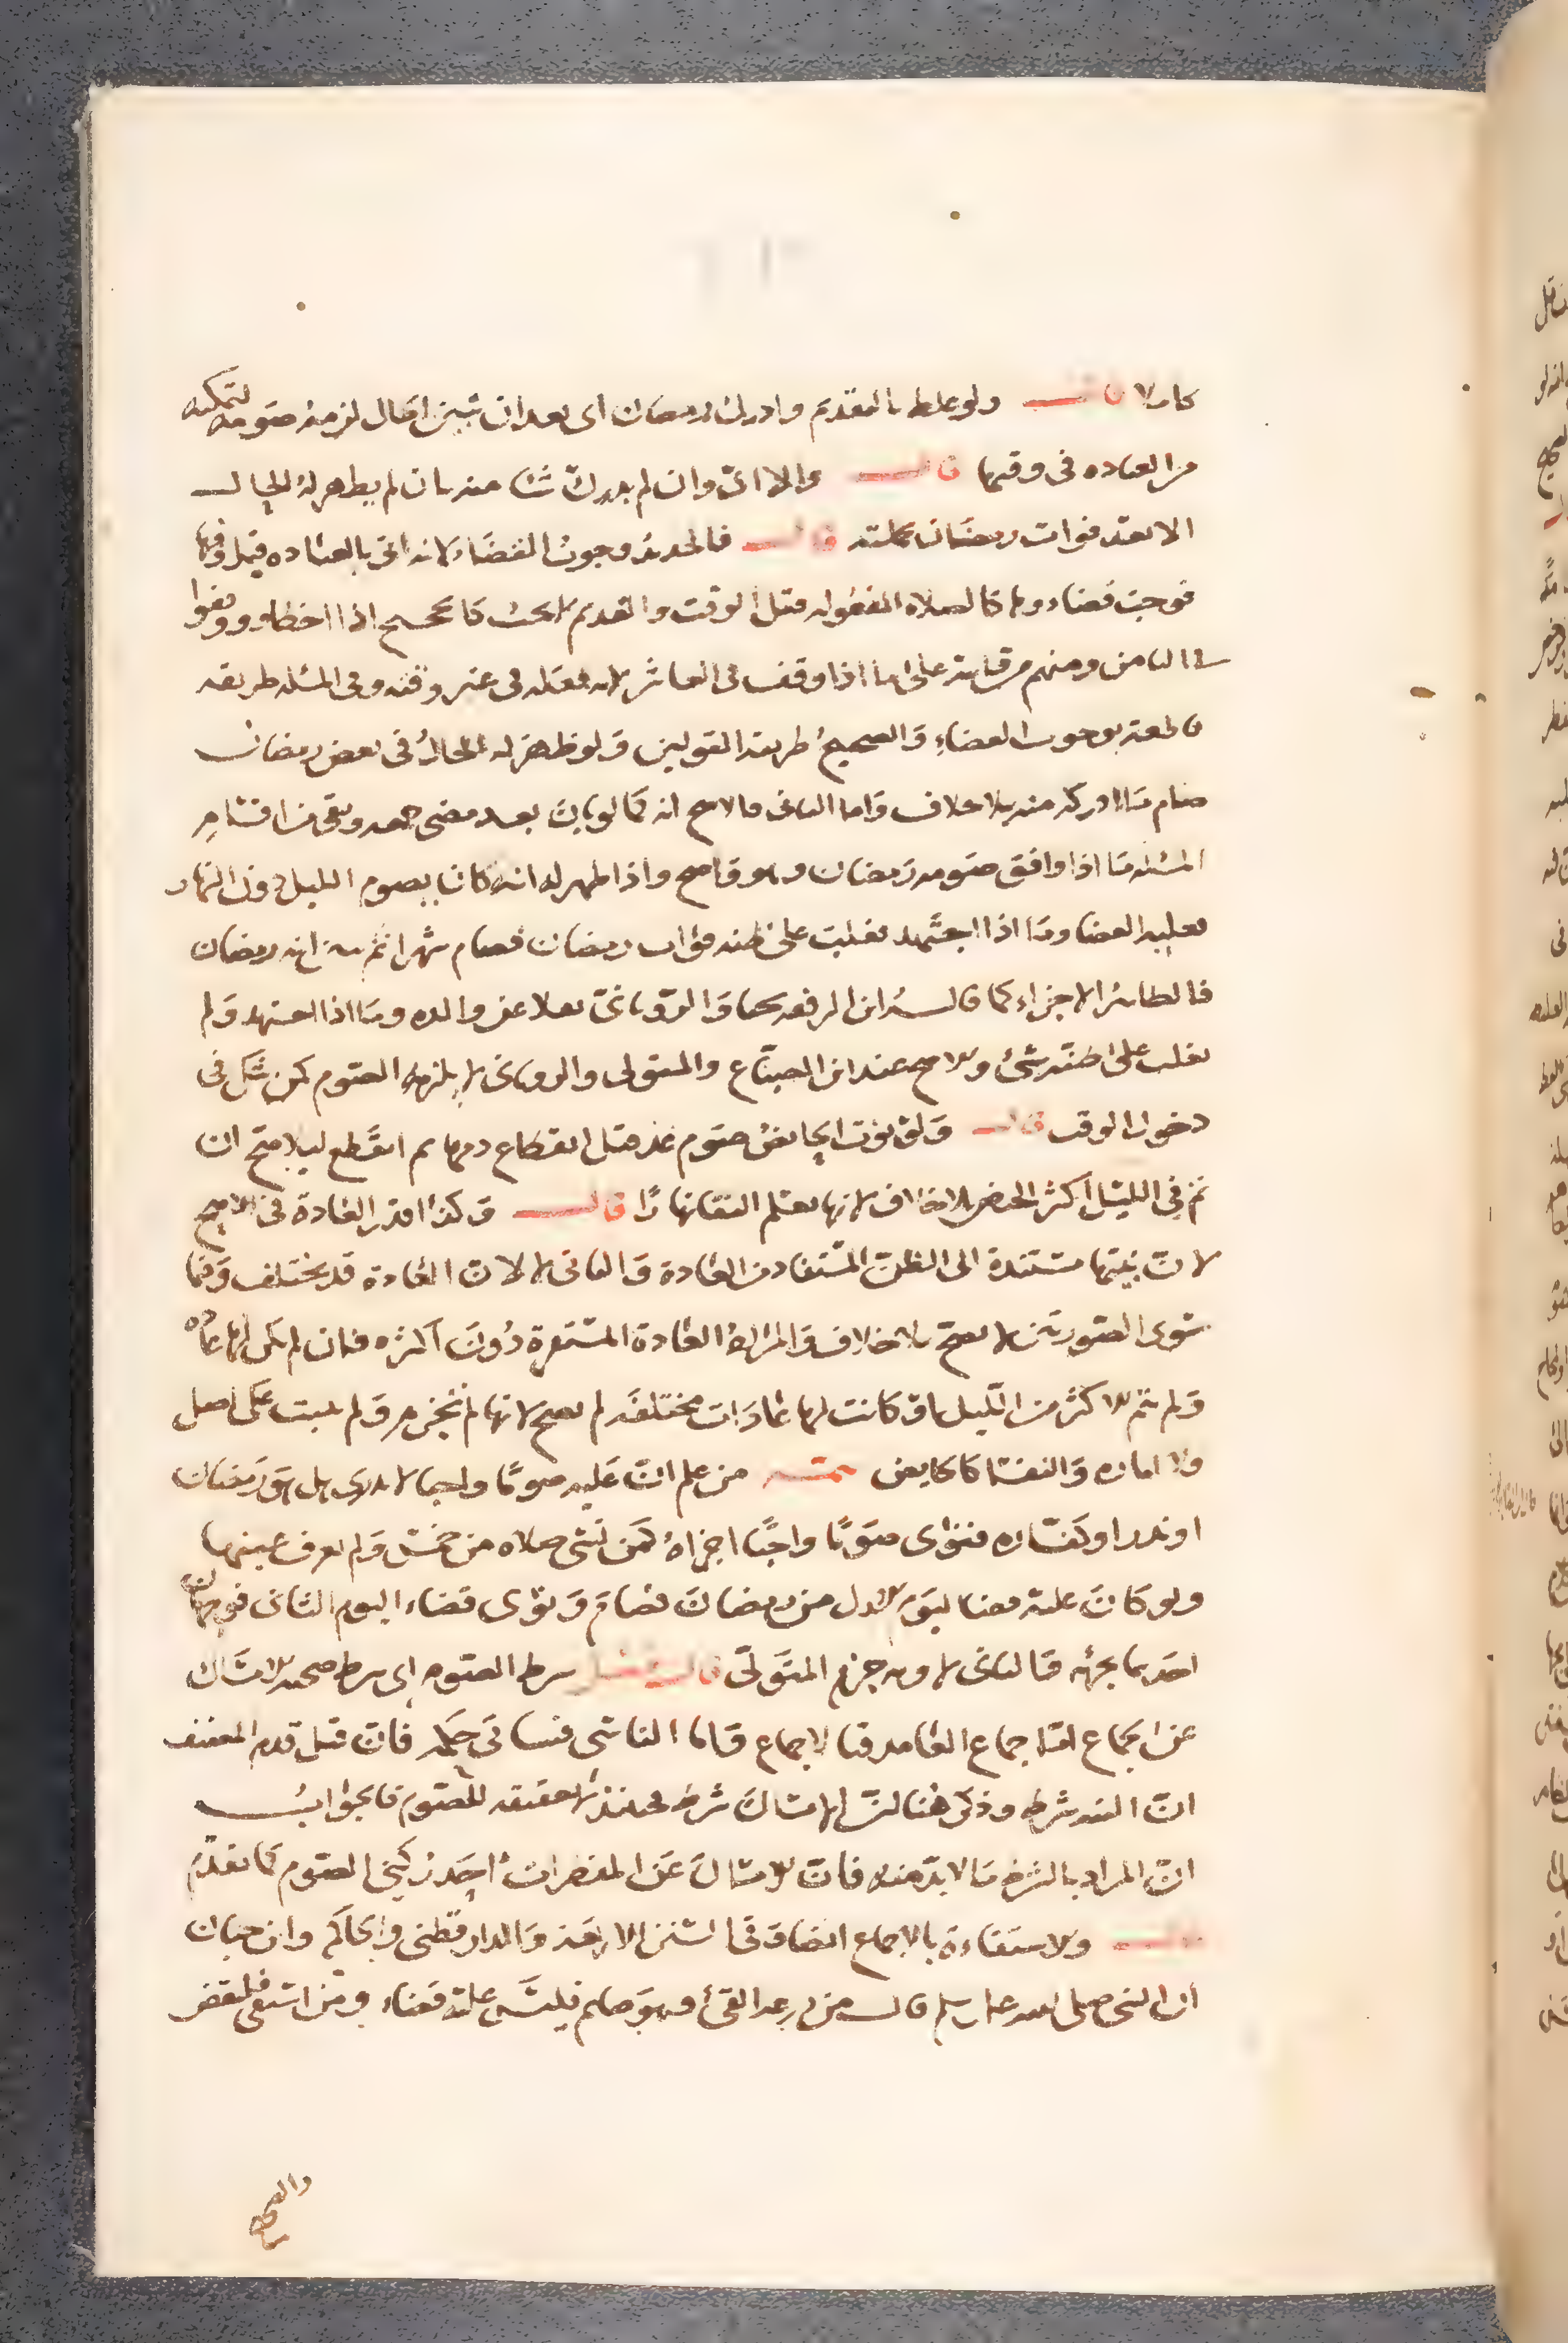 كاملا قال ولو غلط بالتقدم وادرك رمضان اى بعد ان تبين الحال لزمه صومه لتمكنه
من العباده فى وقتها قال والا اى وان لم يدرك شيا منه بان لم يظهر له الحال
الا بعد فوات رمضان كلته قال فالجديد وجوب القضاء لانه اتى بالعباده قبل وقتها
فوجب قضاوها كالصلاه المفعوله قبل الوقت والقديم لا يجب كالحجيج اذا اخطاوا ووقفوا
الثامن ومنهم من قاسه على ما اذا وقف فى العاشر لانه فعله فى غير وقته وفى المسله طريقه
قاطعه بوجوب القضاء والصحيح طريقه القولين ولو ظهر له الحال فى بعض رمضان
صام ما ادركه منه بلا خلاف واما الباقى فالاصح انه كما لو بان بعد مضى جميعه وبقى من اقسام
المسله ما اذا وافق صومه رمضان وهو واضح واذا ظهر له انه كان يصوم الليل دون النهار
فعليه القضا وما اذا اجتهد فغلب على ظنه فوات رمضان فصام شهرا ثم بان انه رمضان
فالظاهر الاجزاء كما قاله ابن الرفعه بحثا والرويانى نقلا عن والده وما اذا اجتهد ولم
يغلب على ظنه شئ والاصح عند ابن الصباغ والمتولى والرويانى لا يلزمه الصوم كمن شك فى
دخول الوقت قال ولو نوت الحايض صوم غد قبل انقطاع دمها ثم انقطع ليلا صح ان
تم فى الليل اكثر الحيض بلا خلاف لانها تعلم النقا نهارا قال وكذا قدر العادة فى الاصح
لان نيتها مستندة الى الظن المستفاد من العادة والثانى لا لان العادة قد تختلف وفيما
سوى الصورتين لا يصح بلا خلاف والمراد العادة المستقرة دون اكثره فان لم يكن لها عاده
ولم يتم الاكثر من الليل او كانت لها عادات مختلفه لم يصح لانها لم تجزم ولم تبن على اصل
ولا اماره والنفسا كالحايض تتمه من علم ان عليه صوما واجبا لا يدرى هل هو رمضان
او نذر او كفاره فنوى صوما واجبا اجزاه كمن نسى صلاه من خمس ولم يعرف عينها
ولو كان عليه قضا اليوم الاول من رمضان فصام ونوى قضاء اليوم الثانى فوجهان
احدهما يجزئه والثانى لا وبه جزم المتولى قال فصل شرط الصوم اى شرط صحته الامساك
عن الجماع لقا جماع العامد فبالاجماع واما الناسى فسياتى حكمه فان قيل قدم المصنف
ان النيه شرط وذكر هنا ان الامساك شرط فحينئذ لا حقيقه للصوم فالجواب
ان المراد بالشرط ما لا بد منه فان الامساك عن المفطرات احد ركنى الصوم كما تقدم
قال والاستقاءة بالاجماع ايضا وفى السنن الاربعه والدارقطنى والحاكم وابن حبان
ان النبى صلى الله عليه وسلم قال من ذرعه القئ وهو صايم فليس عليه قضاء ومن استقى فليقض
والصحيح